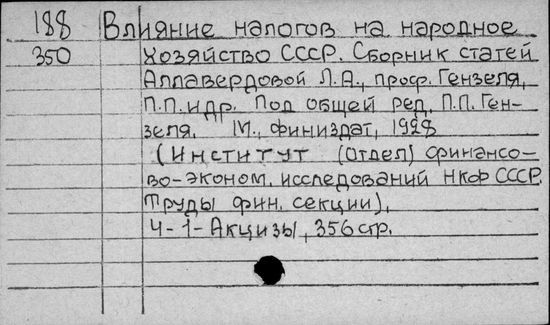 188 Влияние налогов на народное
350 хозяйство СССР. Сборник статей
Аллавердовой Л.А., проф. Гензеля,
П.П. и др. Под общей ред. П.П. Ген-
зеля. М., Финиздат, 1928
(Институт (Отдел) финансо-
во-эконом. исследований НКФ СССР.
Труды фин. секции),
Ч-1-Акцизы, 356 стр.